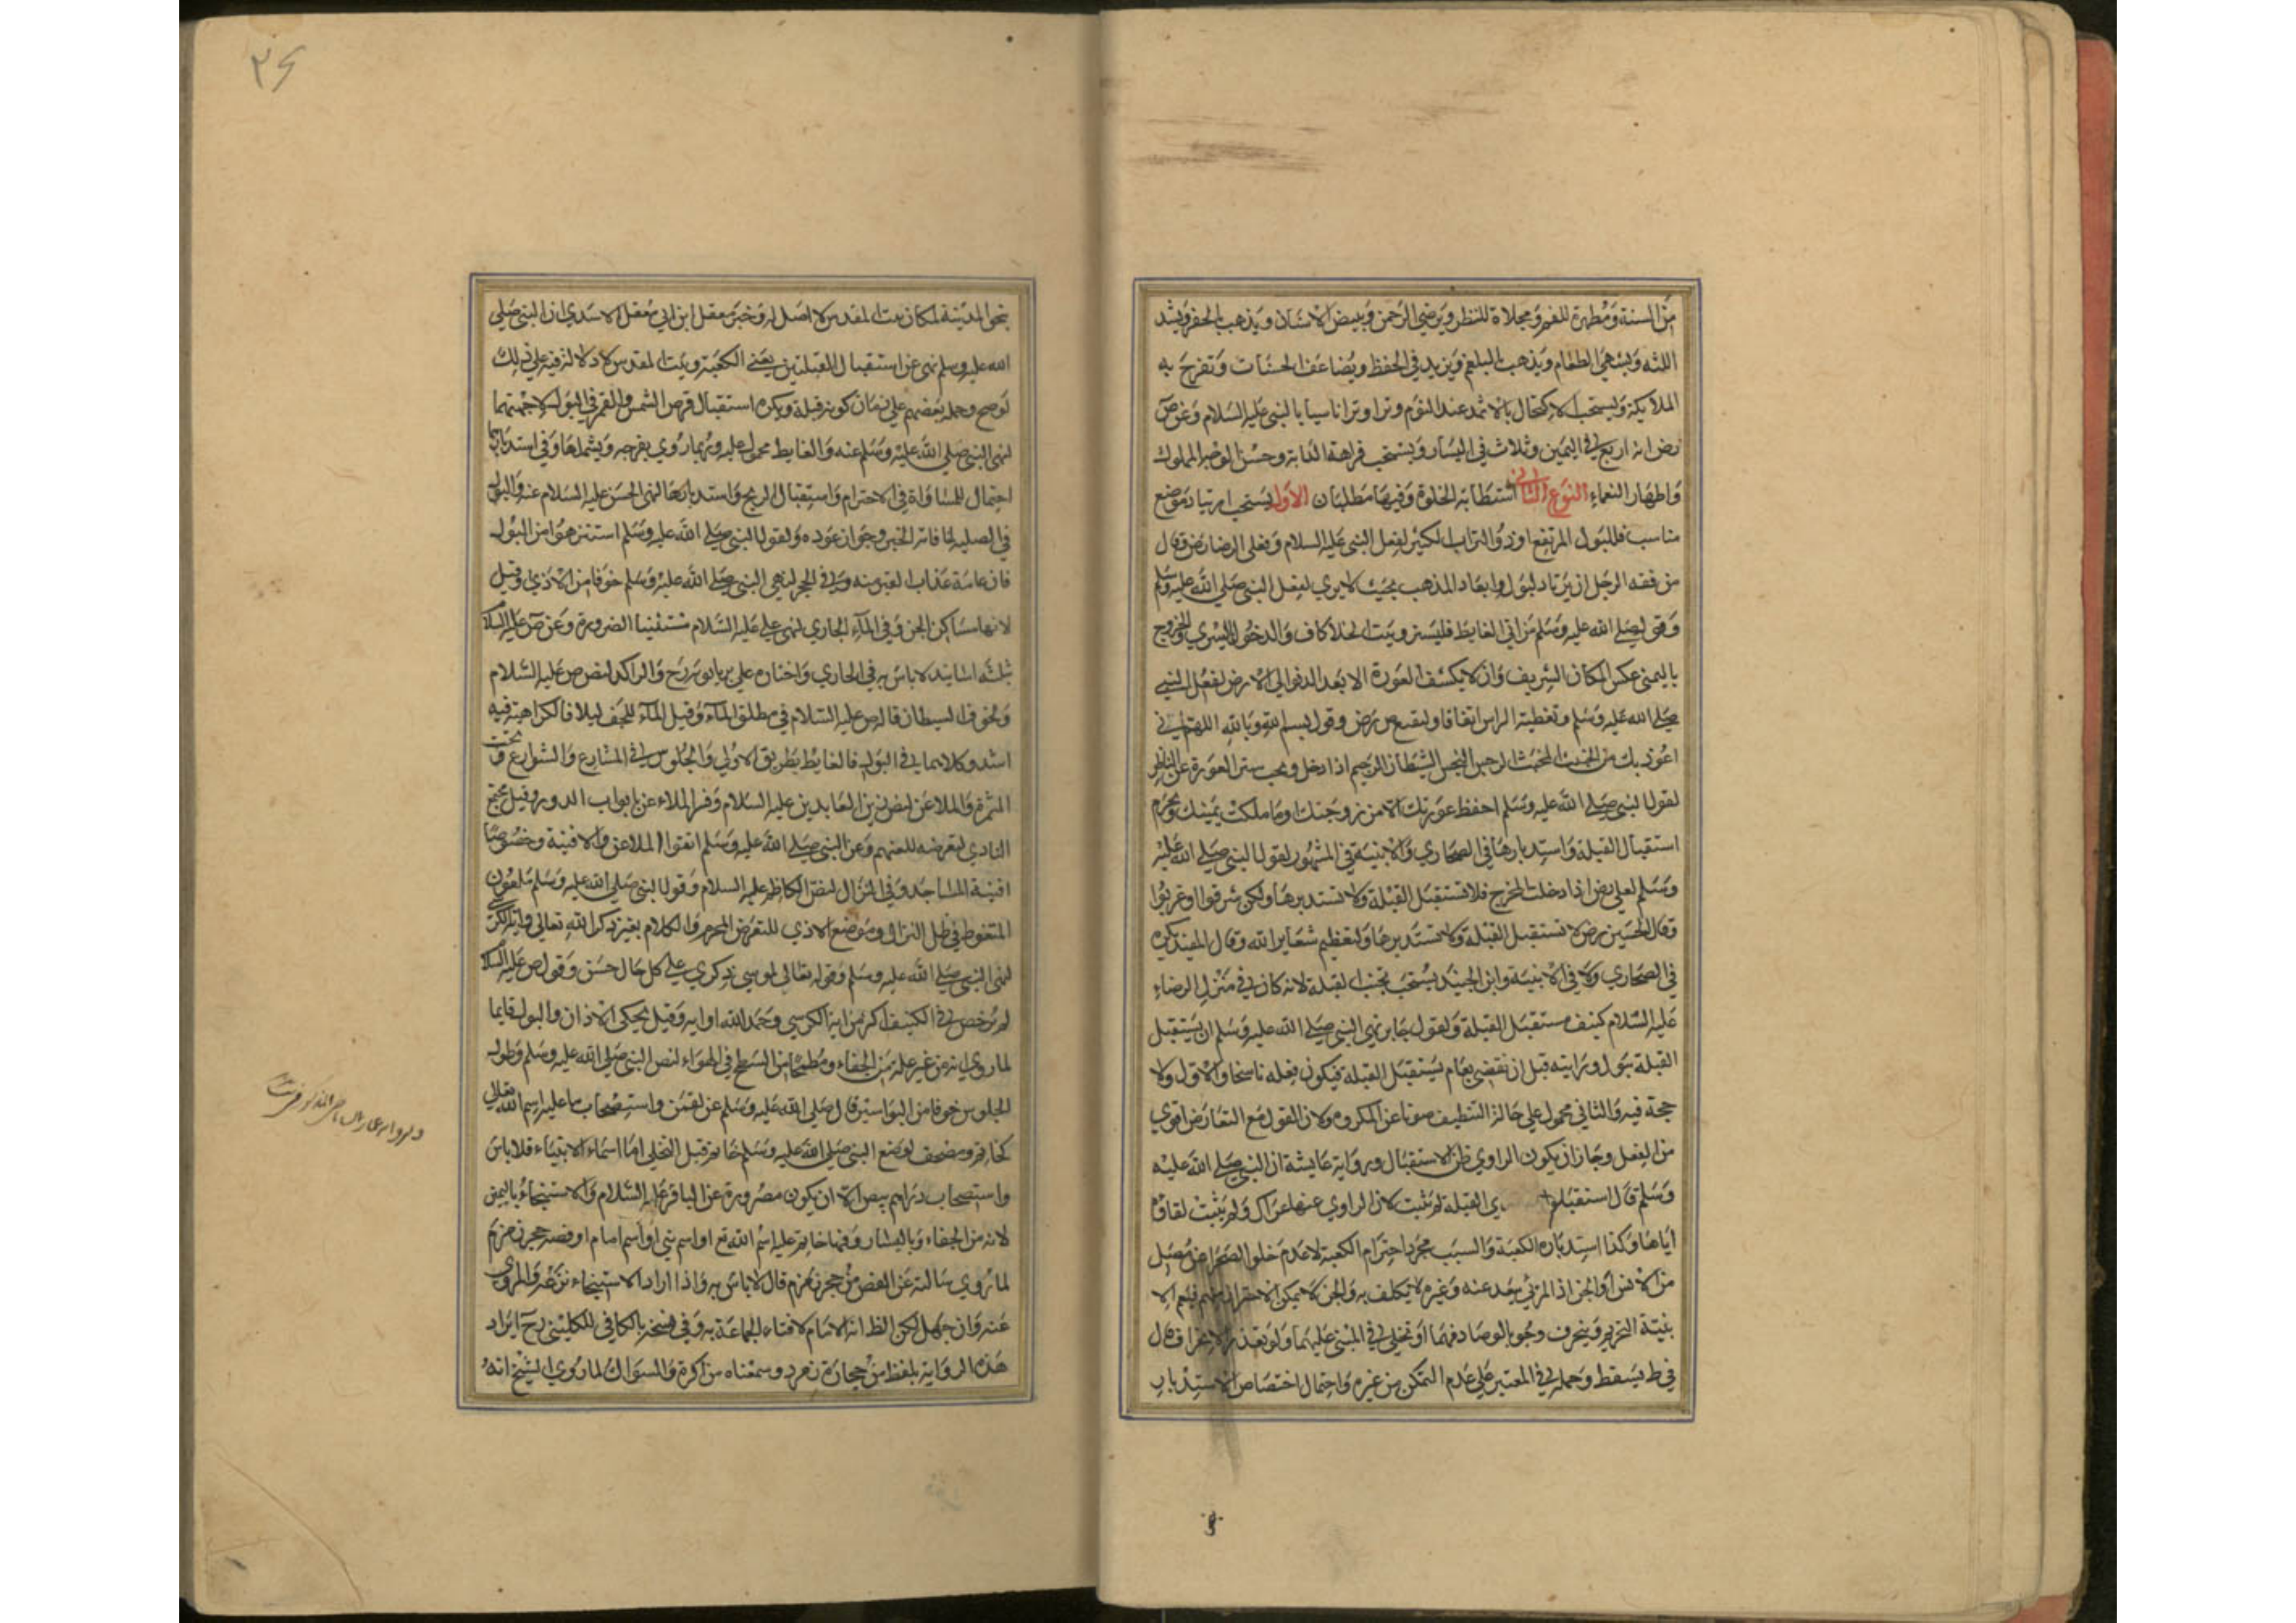 من السنة ومطهرة للفم ومجلاة للنظر ويرضي الرحمن ويبيض الاسنان ويذهب بالحفر ويشد
اللثه ويشهي الطعام ويذهب بالبلغم ويزيد في الحفظ ويضاعف الحسنات وتفرح به
الملائكة ويستحب الاكتحال بالاثمد عند النوم وترا وترا تاسيا بالنبي عليه السلام وعن ص
رض انه اربع في اليمين وثلاث في اليسار ويستحب فراهة الدابة وحسن الوجه المملوك
واظهار النعماء النوع الثاني استطابة الخلوة وفيها مطلبان الاول يستحب ارتياد موضع
مناسب فللبول المرتفع او ذو التراب الكثير لفعل النبي عليه السلام وفعل الرضا رض وقال
من فقه الرجل ان يرتاد لبوله وابعاد المذهب بحيث لا يري لفعل النبي صلي الله عليه وسلم
وقوله صلي الله عليه وسلم من اتي الغايط فليستتر وبيت الخلا كاف والدخول باليسري والخروج
باليمني عكس المكان الشريف وان لا يكشف العورة الا بعد الدنو الي الارض لفعل النبي
صلي الله عليه وسلم وتغطية الراس اتفاقا وليقنع ص رض وقول بسم الله وبالله اللهم اني
اعوذ بك من الخبيث المخبث الرجس النجس الشيطان الرجيم اذا دخل ويجب ستر العورة عن الناظر
لقول النبي صلي الله عليه وسلم احفظ عورتك الا من زوجتك او ما ملكت يمينك ويحرم
استقبال القبلة واستدبارها في الصحاري والابنية في المشهور لقول النبي صلي الله عليه
وسلم لعلي رض اذا دخلت المخرج فلا تستقبل القبلة ولا تستدبرها ولكن شرقوا او غربوا
وقال الحسين رض لا تستقبل القبلة ولا تستدبرها ولتعظيم شعاير الله وقال المفيد يكره
في الصحاري ولا في الابنية وابن الجنيد يستحب تجنب القبلة لانه كان في منزل الرضاء
عليه السلام كنيف مستقبل القبلة ولقول جابر نهي النبي صلي الله عليه وسلم ان يستقبل
القبلة ببول ورايته قبل ان نقضي بعام يستقبل القبلة فيكون فعله ناسخا والاول ولا
حجة فيه والثاني محمول علي حالة التنظيف صونا عن المكروه ولان القول مع التعارض اقوي
من الفعل وجاز ان يكون الراوي ظن الاستقبال ورواية عايشة ان النبي صلي الله عليه
وسلم قال استقبلوا القبلة لم يثبت لان الراوي عنها عراك ولم يثبت لقاؤه
اياها وكذا استدباره الكعبة والسبب مجرد احترام الكعبة لا عدم خلوا الصحرا عن مصل
من الانس او الجن اذ المرئي يبعد عنه وغيره لا يكلف به والجن لا يمكن الاحتراز منهم
بنية التحريم وينحرف وجوبا لو صادفهما او تخلي في المبني عليهما ولو تعذر الانحراف قال
في ط يسقط وحمله في المعتبر علي عدم التمكن من غيره واحتمال اختصاص الاستدبار
نحو المدينة لمكان بيت المقدس لا اصل له وخبر معقل ابن ابي معقل الاسدي ان النبي صلي
الله عليه وسلم نهي عن استقبال القبلتين يعني الكعبة وبيت المقدس لا دلالة فيه علي ذلك
لو صح وحمله بعضهم علي زمان كونه قبلة ويكره استقبال قرص الشمس والقمر في البول لا جهتهما
لنهي النبي صلي الله عليه وسلم عنه والغايط محمول عليه وربما روي بفرجه ويشملها وفي استدبارهما
احتمال للمساواة في الاحترام واستقبال الريح واستدبارها لنهي الحسن عليه السلام عنه والبول
في الصلبه لمنافاته الخبر وجواز عوده ولقول النبي صلي الله عليه وسلم استنزهوا من البول
فان عامة عذاب القبر منه وفي الجحر لنهي النبي صلي الله عليه وسلم خوفا من الاذي وقيل
لانها مساكن الجن وفي المآء الجاري لنهي علي عليه السلام مستثنيا الضرورة وعن ص عليه السلا
بثلثه اسانيد لا باس به في الجاري واختاره علي بن بابويه رح والراكد لنص ص عليه السلام
ولخوف الشيطان قاله ص عليه السلام في مطلق المآء وقيل المآء للجن ليلا فالكراهية فيه
اشد وكلاهما في البول فالغايط بطريق الاولي والجلوس في المشارع والشوارع وتحت
المثمرة والملاعن لنص زين العابدين عليه السلام وفسر الملاعن بابواب الدور وقيل مجتمع
النادي لتعرضه للعنهم وعن النبي صلي الله عليه وسلم اتقوا الملاعن والافنية وخصوصا
افنية المساجد وفي النزال لنص الكاظم عليه السلام وقول النبي صلي الله عليه وسلم ملعون
المتغوط في ظل النزال وموضع الاذي للتعرض المحرم والكلام بغير ذكر الله تعالي واية الكرسي
لنهي النبي صلي الله عليه وسلم وقوله تعالي لموسي ذكري علي كل حال حسن وقول ص عليه السلا
لم يرخص في الكنيف اكثر من اية الكرسي وحمد الله او ايه وقيل يحكي الاذان والبول قايما
لما روي انه من غير علة من الجفاء ومطمحا من السطح في الهواء لنص النبي صلي الله عليه وسلم وطول
الجلوس خوفا من البواسير قال صلي الله عليه وسلم عن لقمن واستصحاب ما عليه اسم الله تعالي
كخاتم ومصحف لوضع النبي صلي الله عليه وسلم خاتمه قبل التخلي اما اسماء الانبياء فلا باس
واستصحاب دراهم بيض الا ان يكون مصرورة عن الباقر عليه السلام والاستنجاء باليمين
لانه من الجفاء وباليسار وفيها خاتم عليه اسم الله تع او اسم نبي او اسم امام او فصه حجر زمزم
لما روي سالته عن الفص من حجر زمزم قال لا باس به واذا اراد الاستنجاء نزعه والمروي
عنه وان جهل لكن الظ انه الامام لافتاء الجماعة به وفي نسخة بالكافي للكليني رح ايراد
هذه الرواية بلفظ من حجارة زمرد وسمعناه مذاكرة والسواك لما روي الشيخ انه